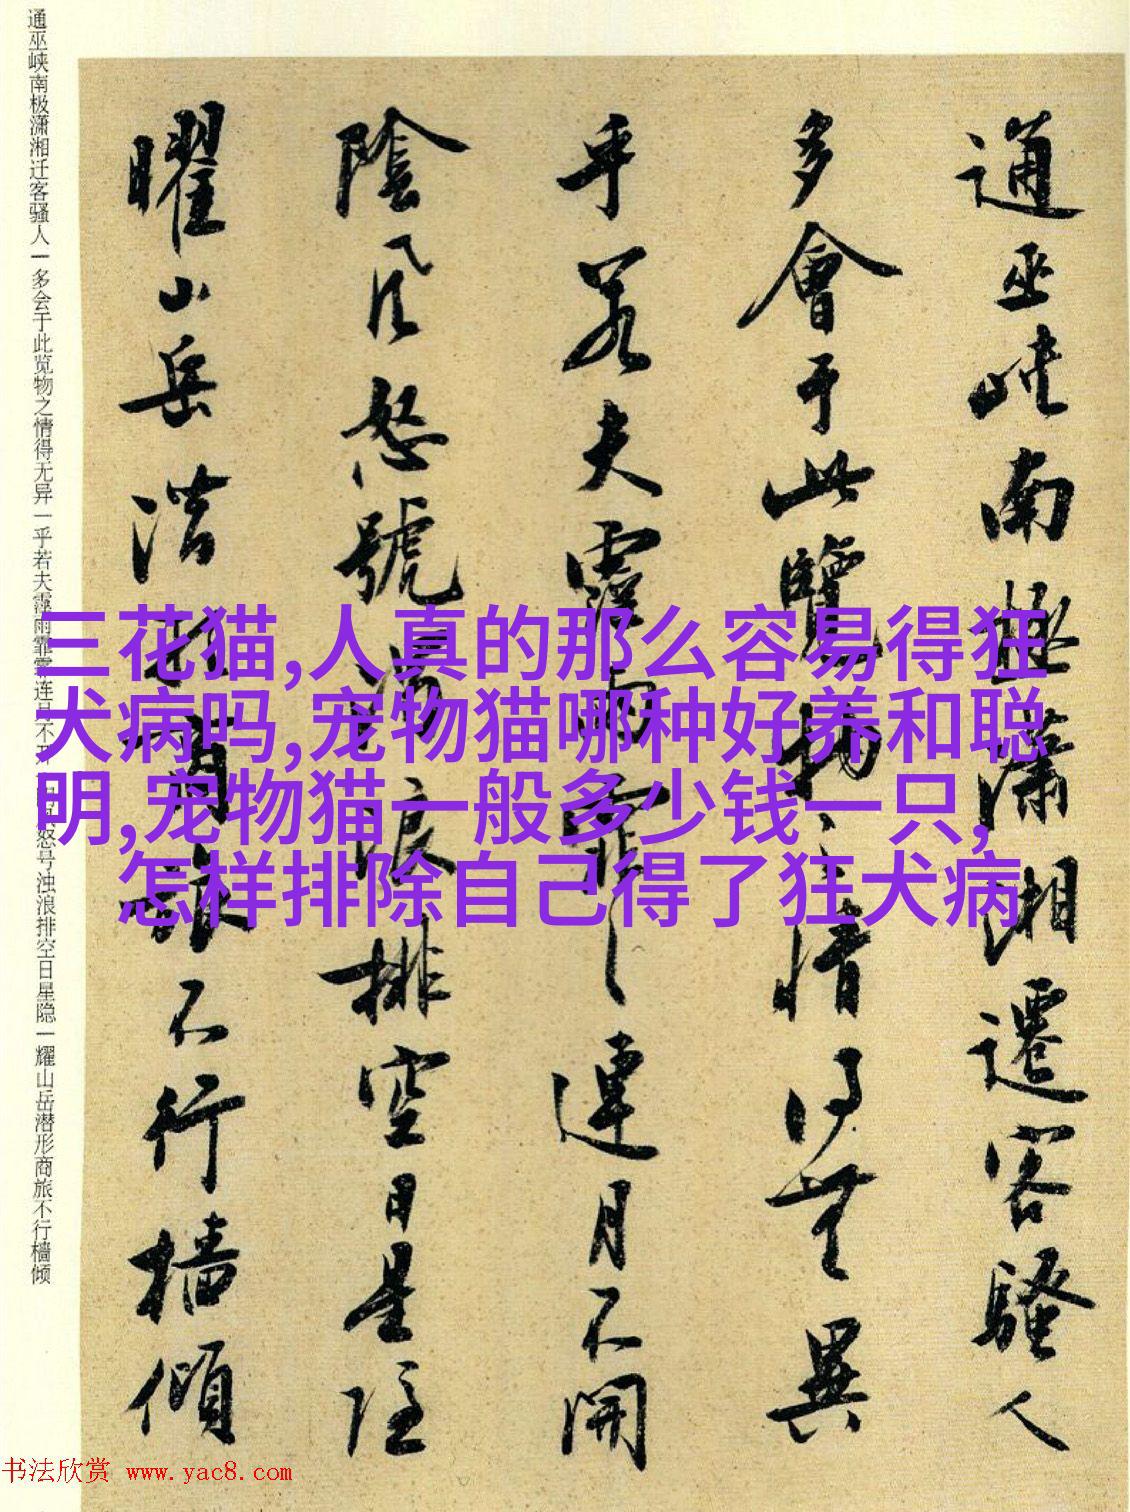 通巫峡南极潇湘迁客骚人一多会于此览物之情得无异一乎若夫霪雨霏霏连月不开
怒号浊浪排空日星隐一耀山岳潜形商旅不行樯倾
通巫峡南極瀟湘遷客騷人
多會于此覽物之情得無異
乎若夫霪雨霏〻連月不開
陰風怒號濁浪排空日星隱
曜山岳潛形商旅不行檣傾
三花猫,人真的那么容易得狂
犬病吗,宠物猫哪种好养和聪
明,宠物猫一般多少钱一只,
怎样排除自己得了狂犬病
书法欣赏 www.yac8.com